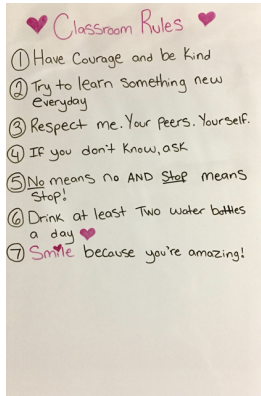 Classroom Rules
① Have Courage and be Kind
② Try to learn something new
everyday
③ Respect me. Your peers. Yourself.
④ If you don't know, ask
⑤ No means no AND Stop means
Stop!
⑥ Drink at least Two water bottles
a day
⑦ Smile because you're amazing!